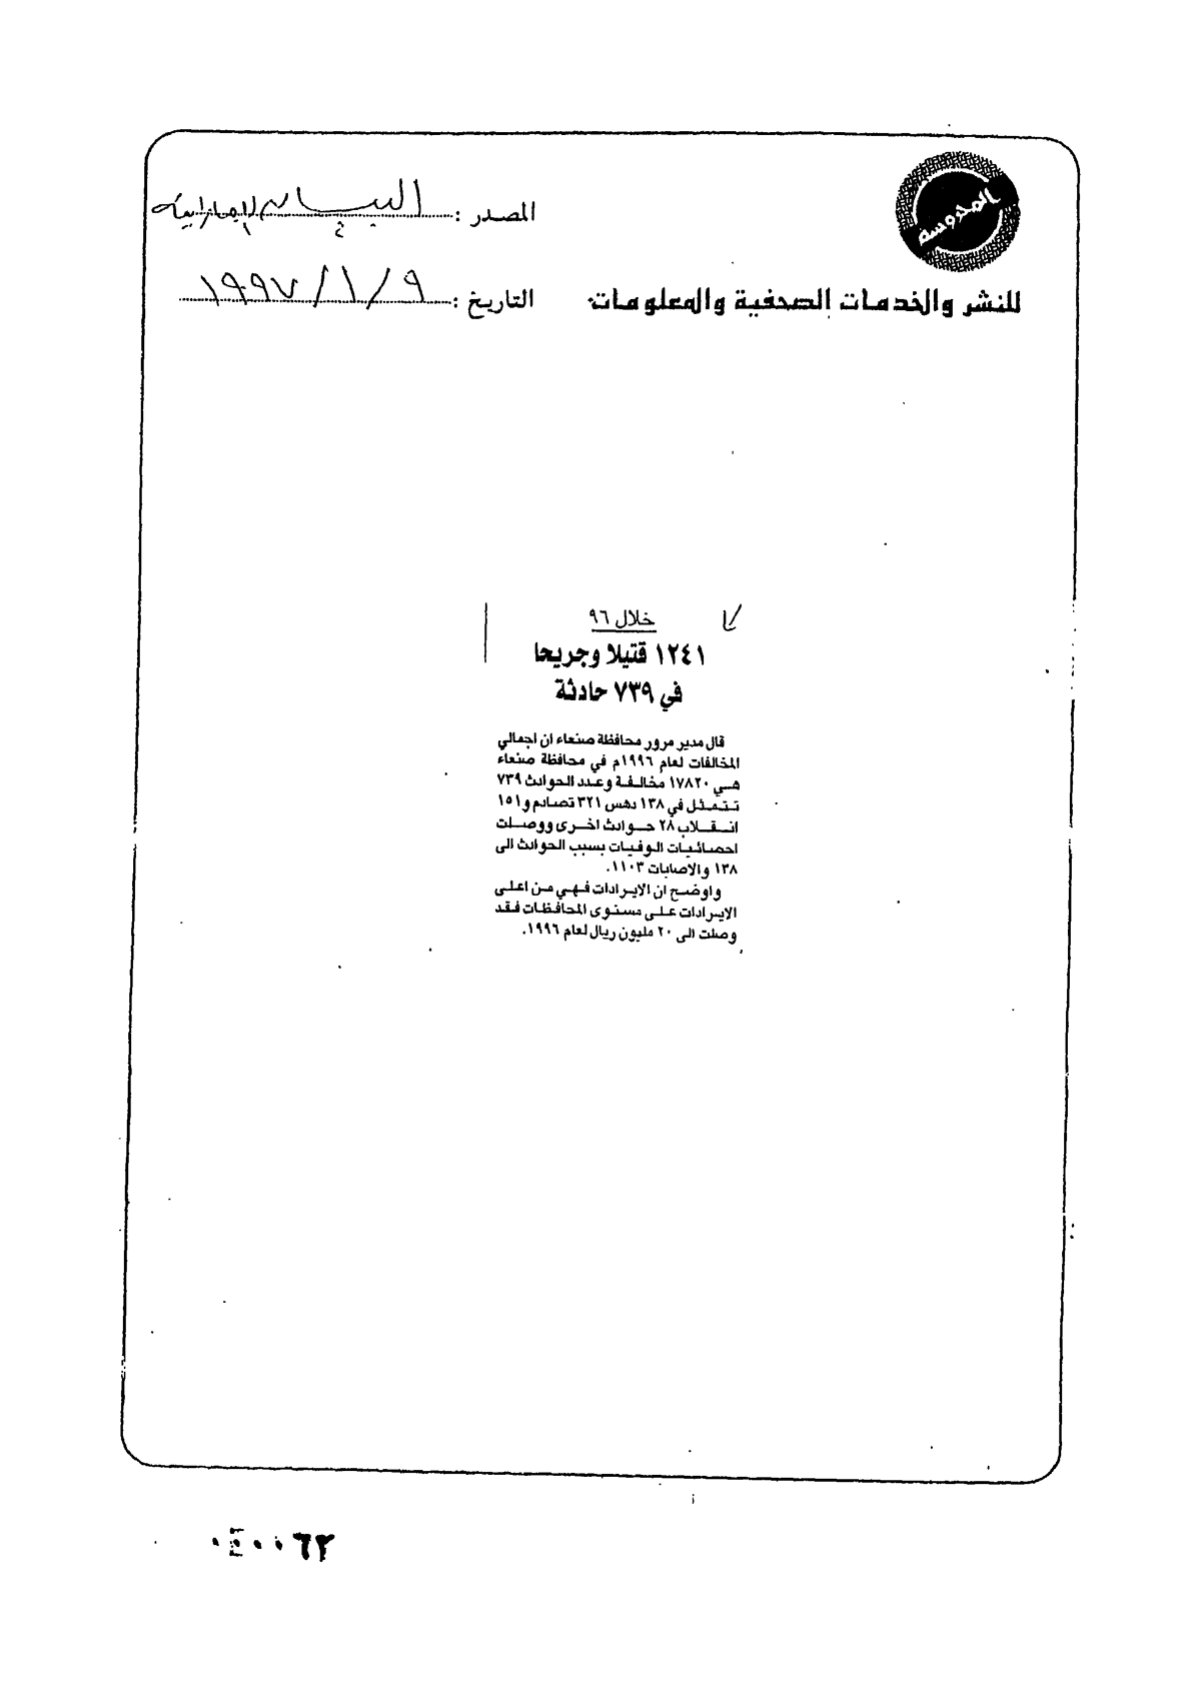 المحروسة
للنشر والخدمات الصحفية والمعلومات
المصدر : البيان الإماراتية
التاريخ : ٩ / ١ / ١٩٩٧
خلال ٩٦
١٢٤١ قتيلا وجريحا
في ٧٣٩ حادثة
قال مدير مرور محافظة صنعاء ان اجمالي
المخالفات لعام ١٩٩٦م في محافظة صنعاء
هي ١٧٨٢٠ مخالفة وعدد الحوادث ٧٣٩
تتمثل في ١٣٨ دهس ٣٢١ تصادم و١٥١
انقلاب ٢٨ حوادث اخرى ووصلت
احصائيات الوفيات بسبب الحوادث الى
١٣٨ والاصابات ١١٠٣.
واوضح ان الايرادات فهي من اعلى
الايرادات على مستوى المحافظات فقد
وصلت الى ٢٠ مليون ريال لعام ١٩٩٦.